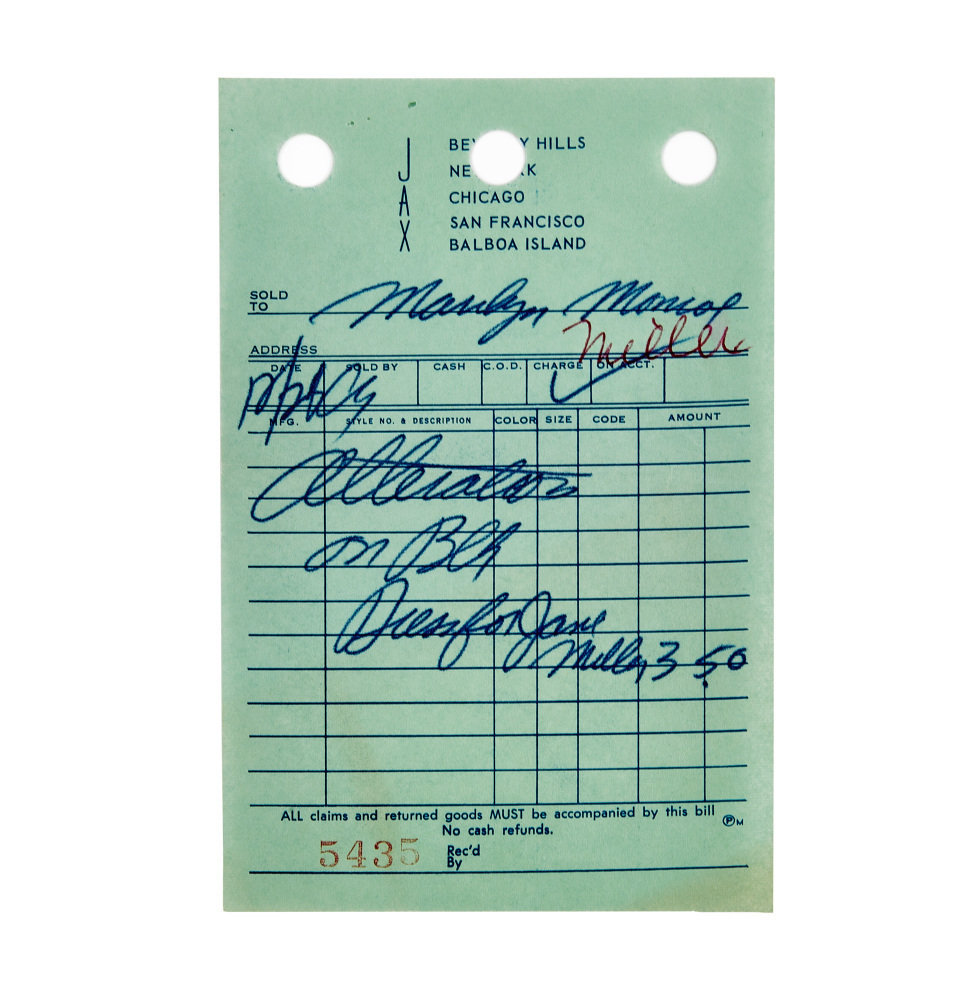 JAX
BEVERLY HILLS
NEW YORK
CHICAGO
SAN FRANCISCO
BALBOA ISLAND
SOLD TO Marilyn Monroe
Miller
ADDRESS
DATE SOLD BY CASH C.O.D. CHARGE ON ACCT.
MFG. STYLE NO. & DESCRIPTION COLOR SIZE CODE AMOUNT
Alteration
on Blk
Dress for Jane
Miller 3 50
ALL claims and returned goods MUST be accompanied by this bill
No cash refunds. PM
5435 Rec'd By